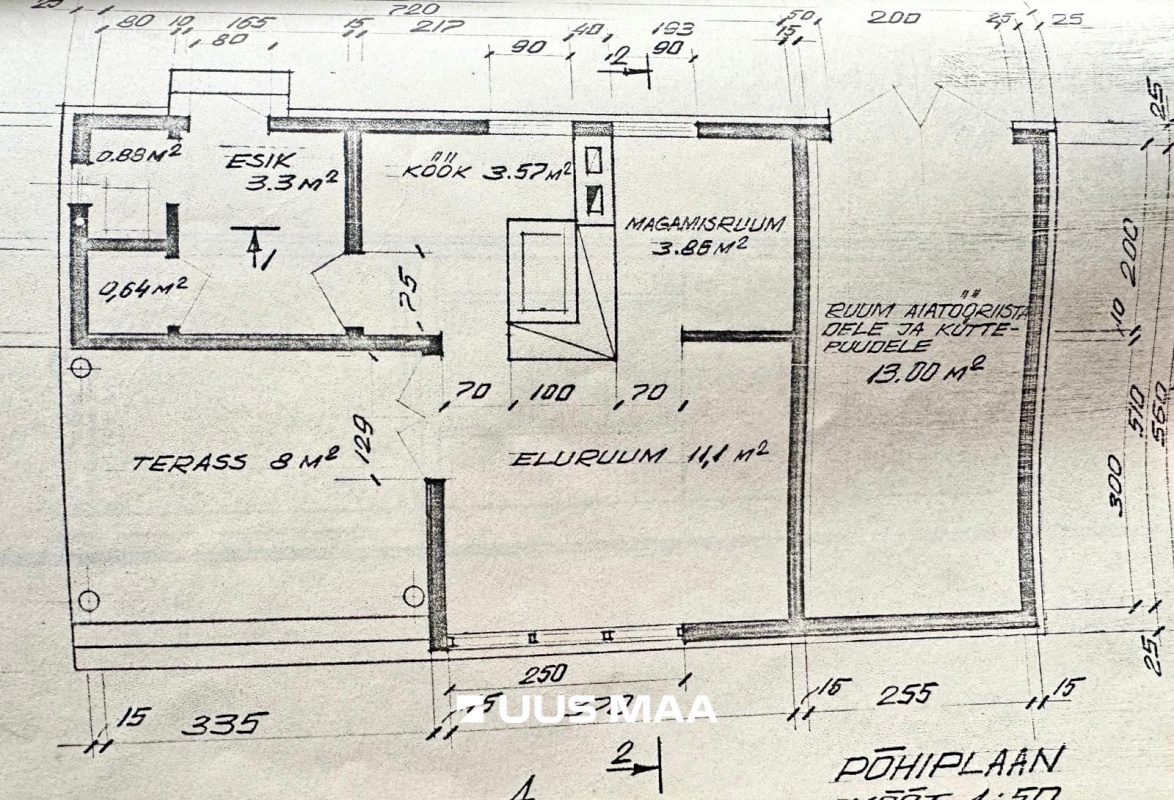 25
720
80 10 165 15 217 40 193 50 200 25 25
80 90 2 90 15
25
0.88 M²
ESIK
3.3 M²
KÖÖK 3.57 M²
MAGAMISRUUM
3.86 M²
1
0,64 M²
75
200
10
RUUM AIATÖÖRIISTA
DELE JA KÜTTE-
PUUDELE
13.00 M²
70 100 70
129
510
560
TERASS 8 M²
ELURUUM 11,1 M²
300
25
250
15 335 15 15 255 15
UUS MAA
2
PÕHIPLAAN
1:50